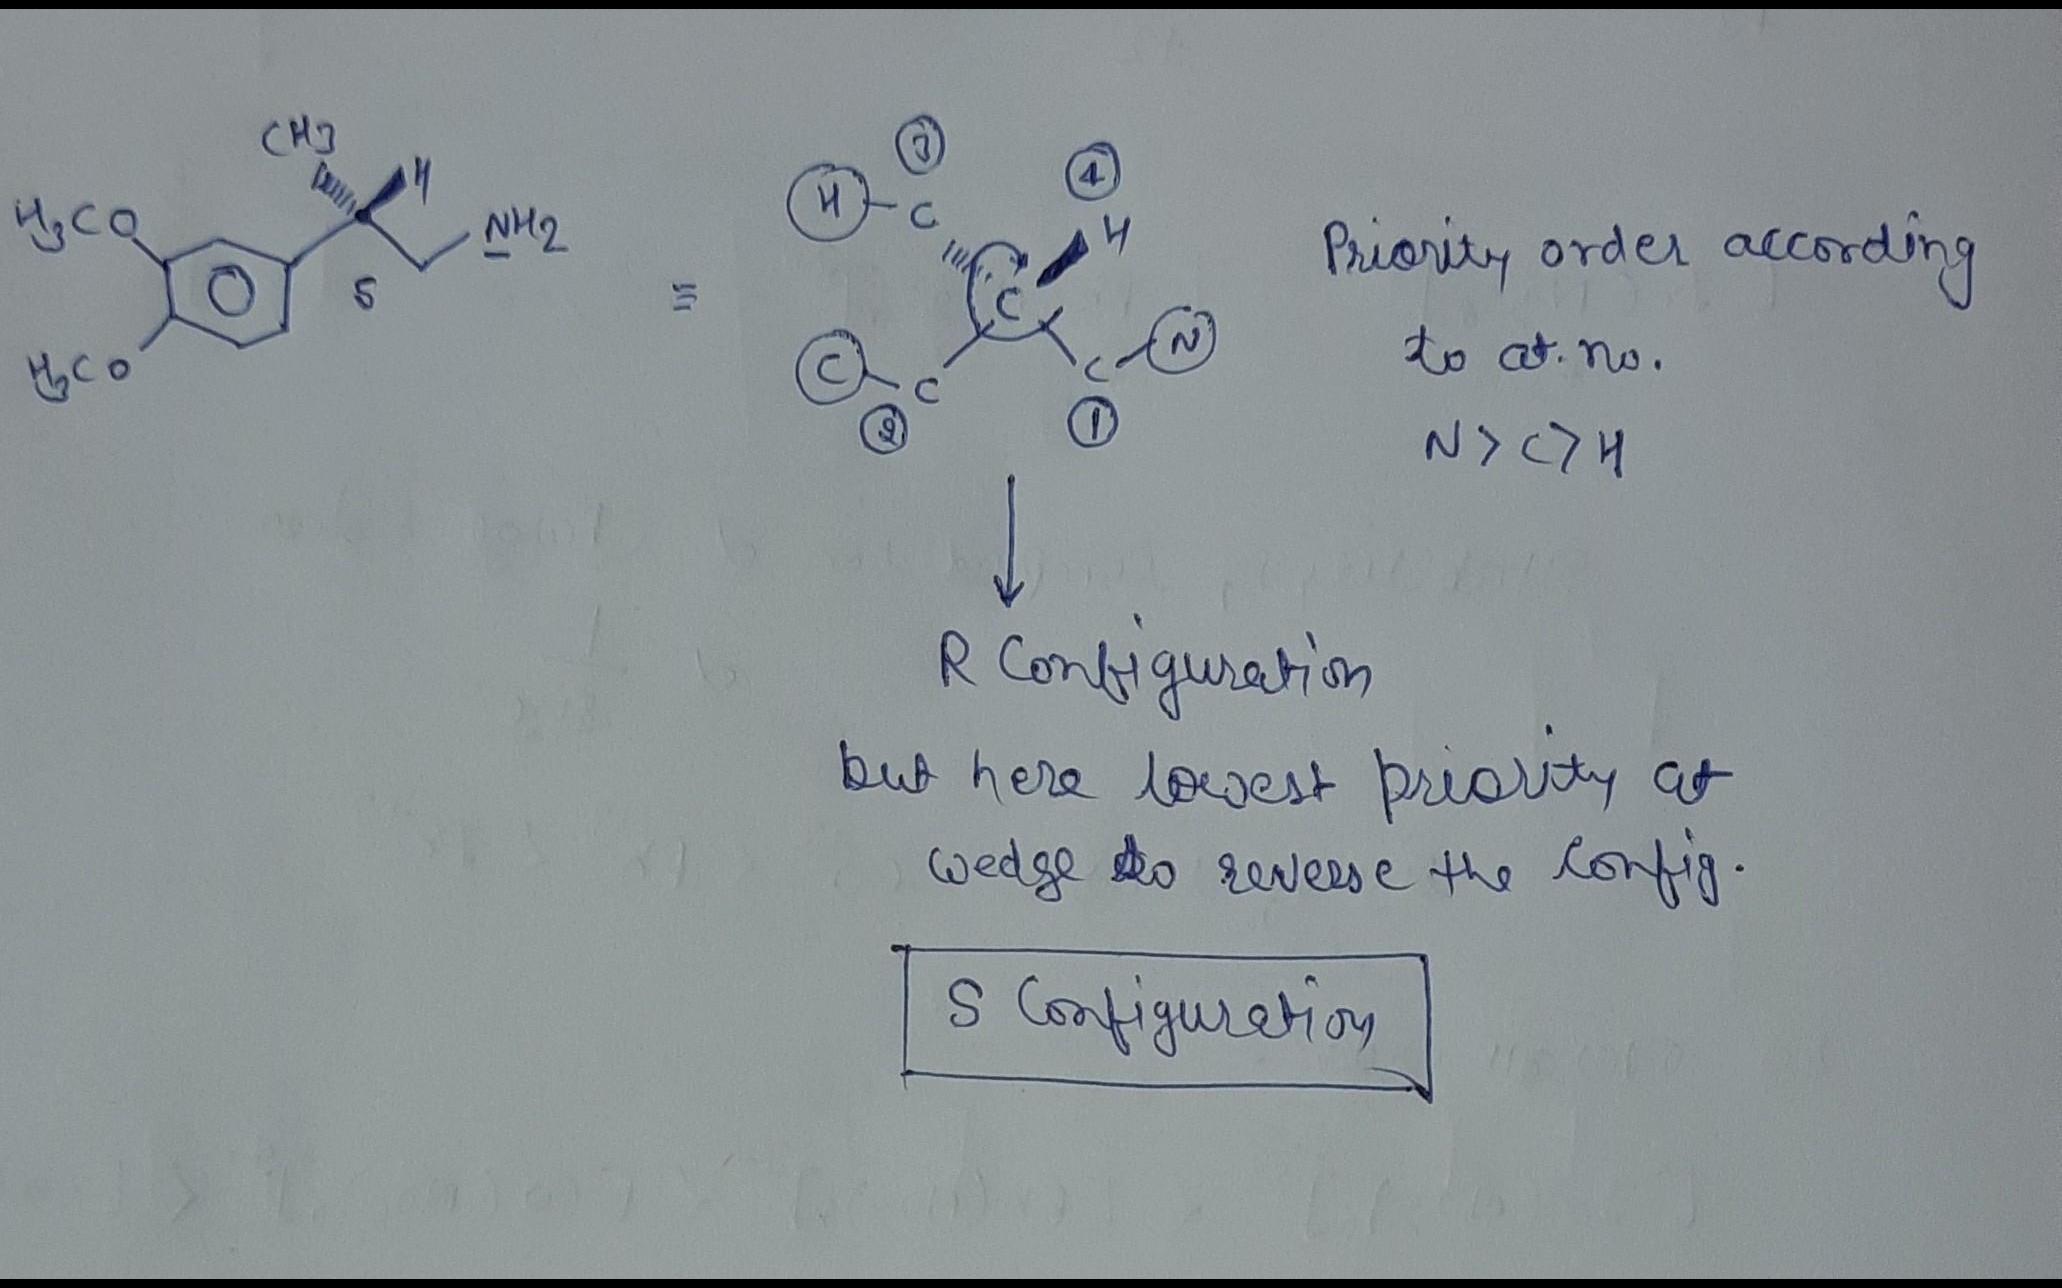 CH3
H
H3CO
NH2
S
H3CO
≡
③
④
H C
H
C
C C
C N
②
①
Priority order according
to at. no.
N > C > H
R Configuration
but here lowest priority at
wedge so reverse the config.
S Configuration